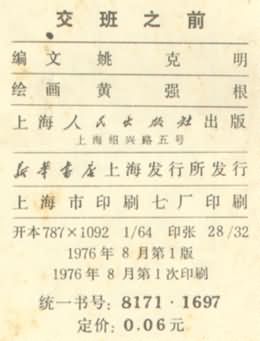 交班之前
编文 姚克明
绘画 黄强根
上海人民出版社出版
上海绍兴路五号
新华书店上海发行所发行
上海市印刷七厂印刷
开本787×1092 1/64 印张 28/32
1976年8月第1版
1976年8月第1次印刷
统一书号:8171·1697
定价:0.06元